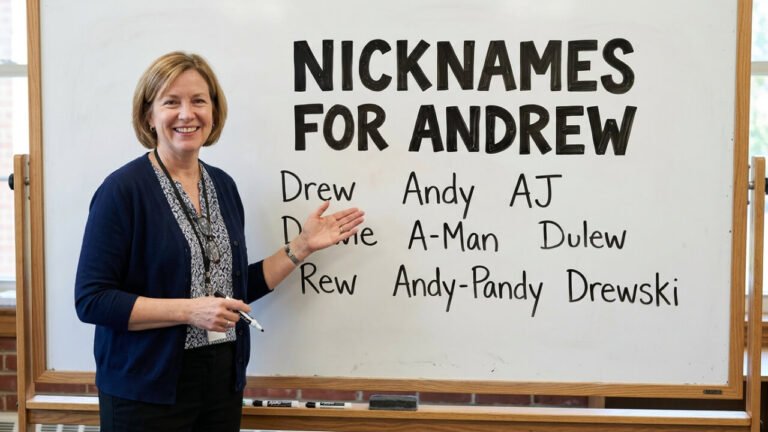 NICKNAMES
FOR ANDREW
Drew Andy AJ
A-Man Dulew
Rew Andy-Pandy Drewski